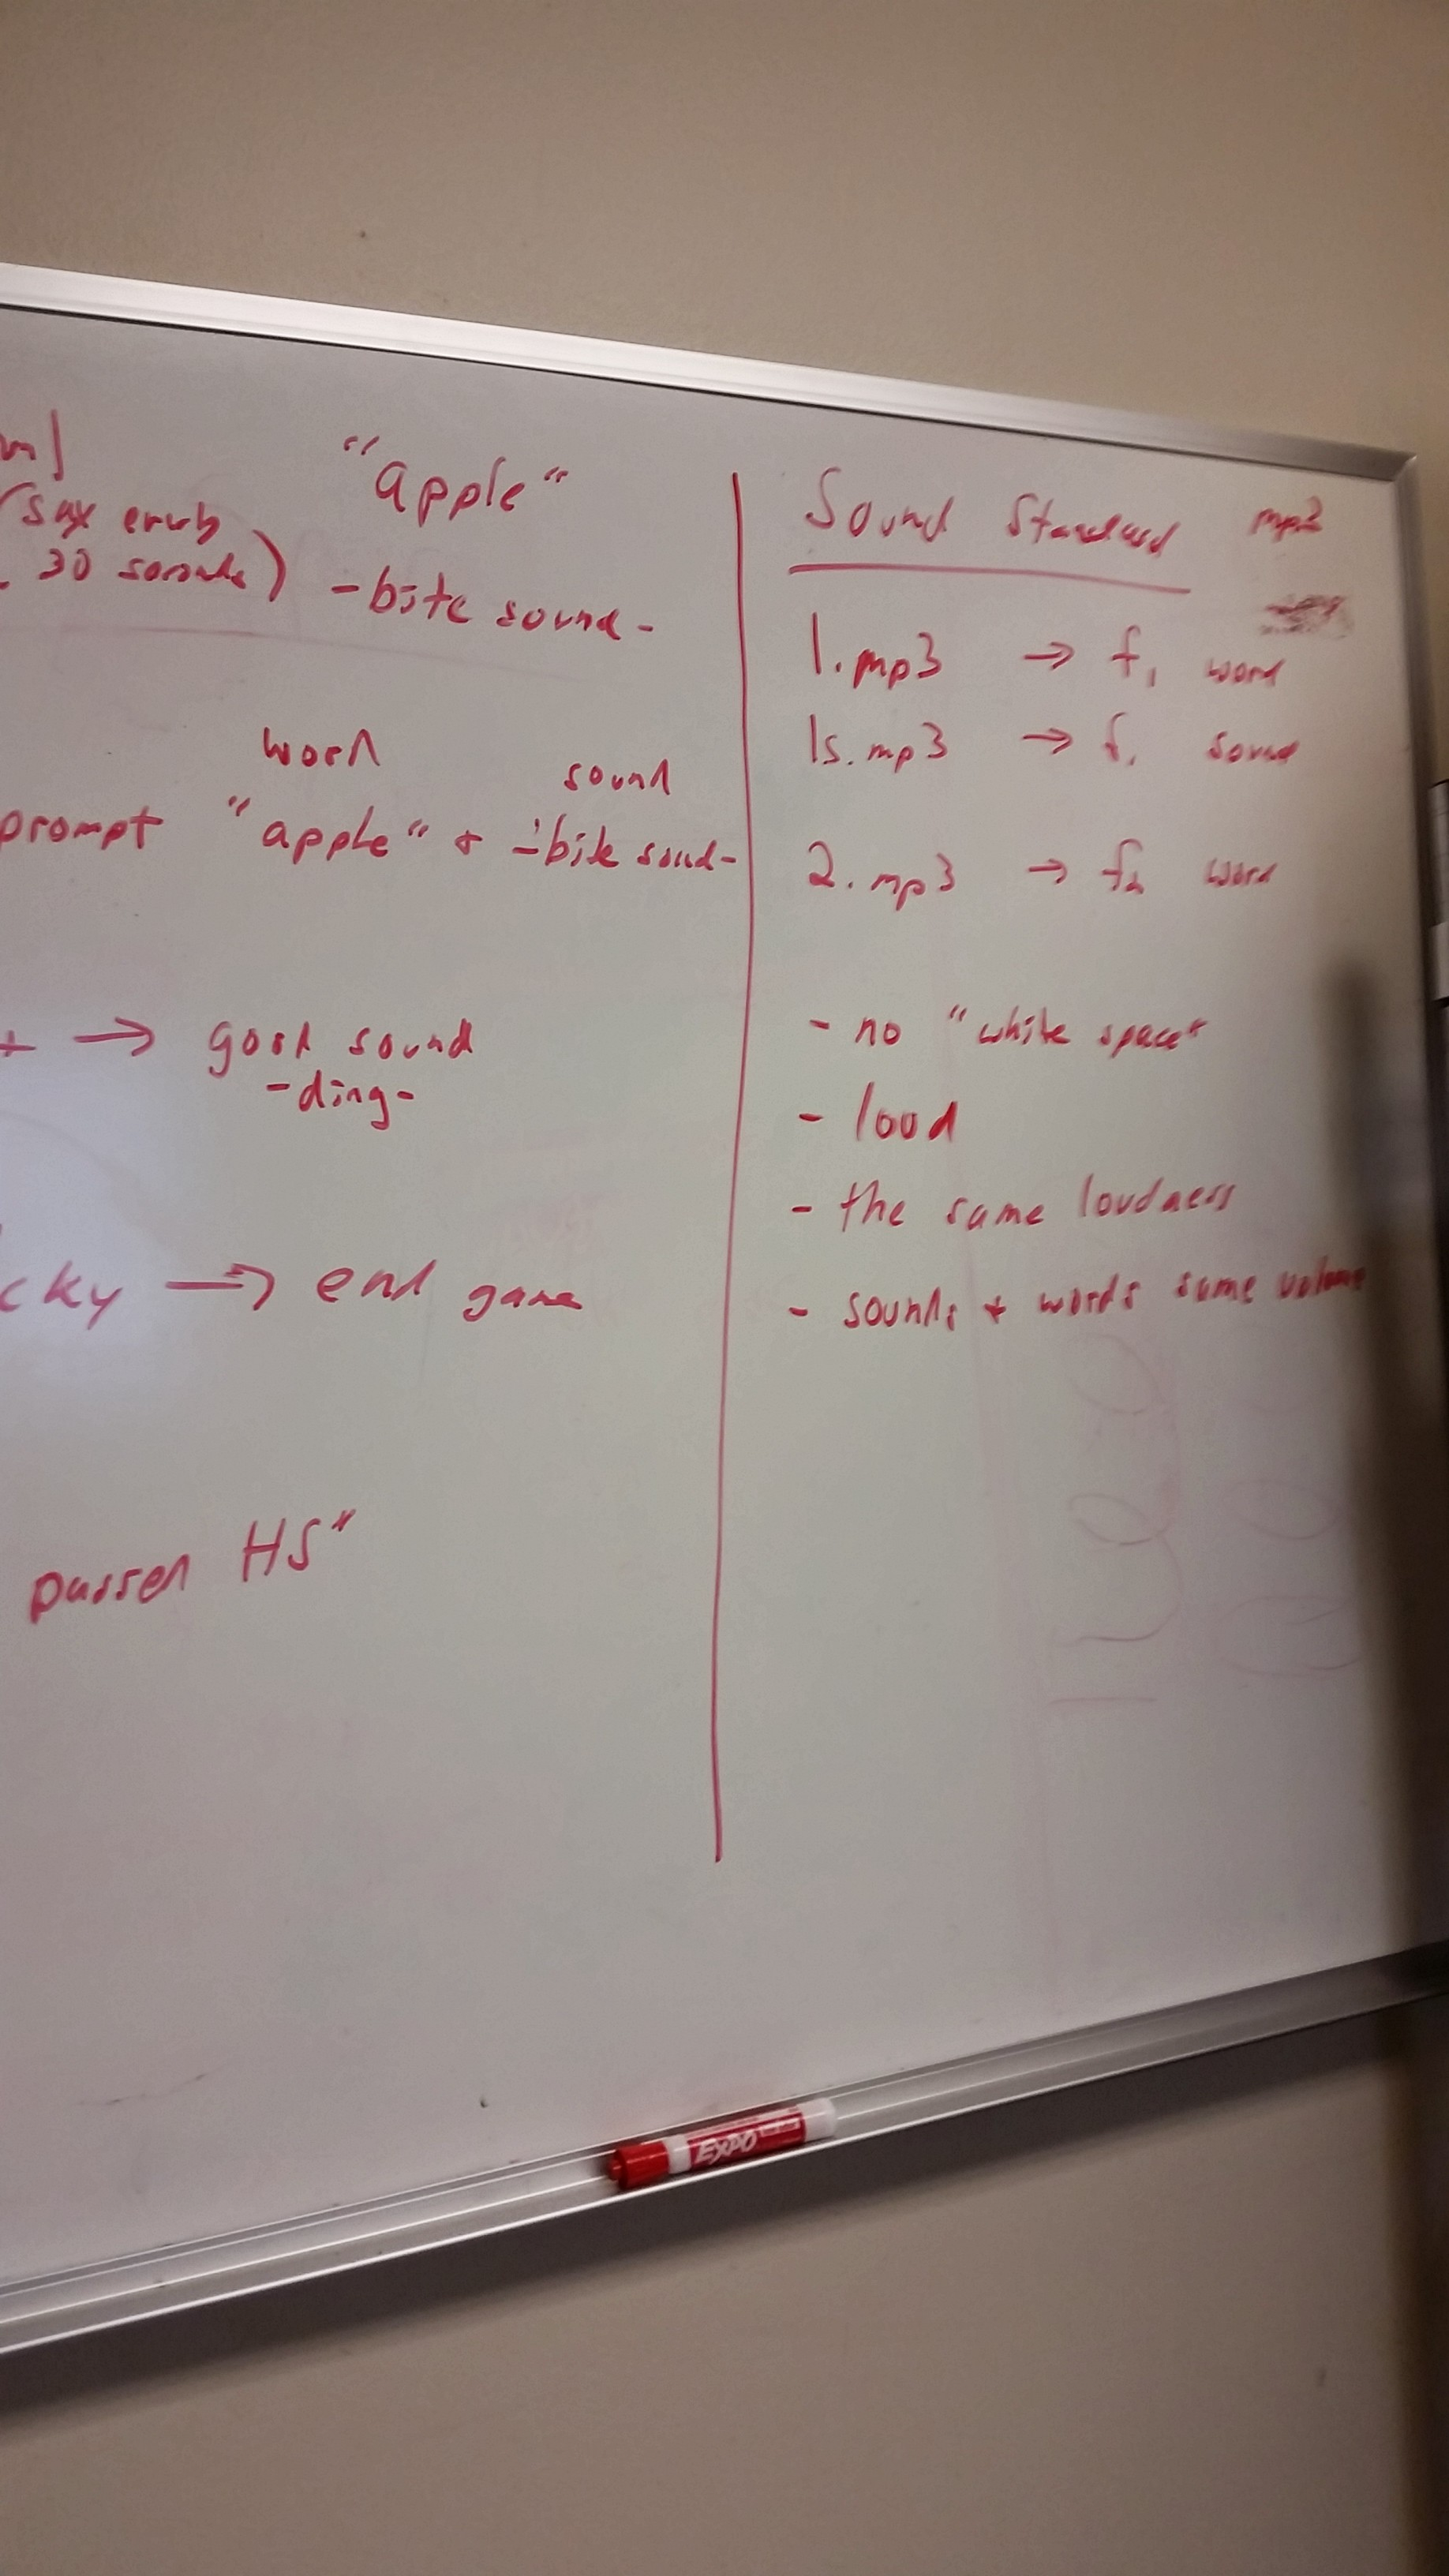 "apple"
30
-bite sound-
word
sound
prompt "apple" + -bite sound-
→ good sound
-ding-
cky → end game
passed HS"
Sound Standard
1.mp3 → f1 word
1s.mp3 → f1 sound
2.mp3 → f2 word
- no "white space"
- loud
- the same loudness
- sounds + words same volume
EXPO